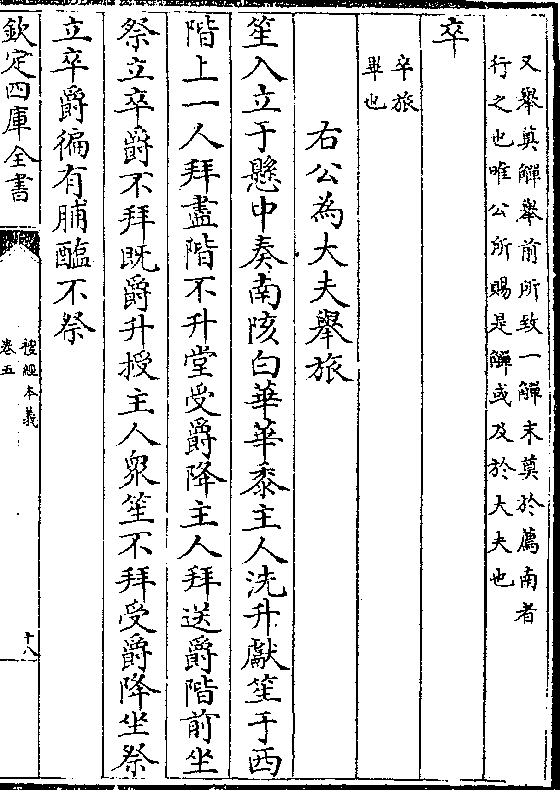 又舉奠觶舉前所致一觶末奠於薦南者
行之也唯公所賜是觶或及於大夫也
卒
卒旅
畢也
右公為大夫舉旅
笙入立于懸中奏南陔白華華黍主人洗升獻笙于西
階上一人拜盡階不升堂受爵降主人拜送爵階前坐
祭立卒爵不拜既爵升授主人眾笙不拜受爵降坐祭
立卒爵徧有脯醢不祭
欽定四庫全書
禮經本義
卷五
十八